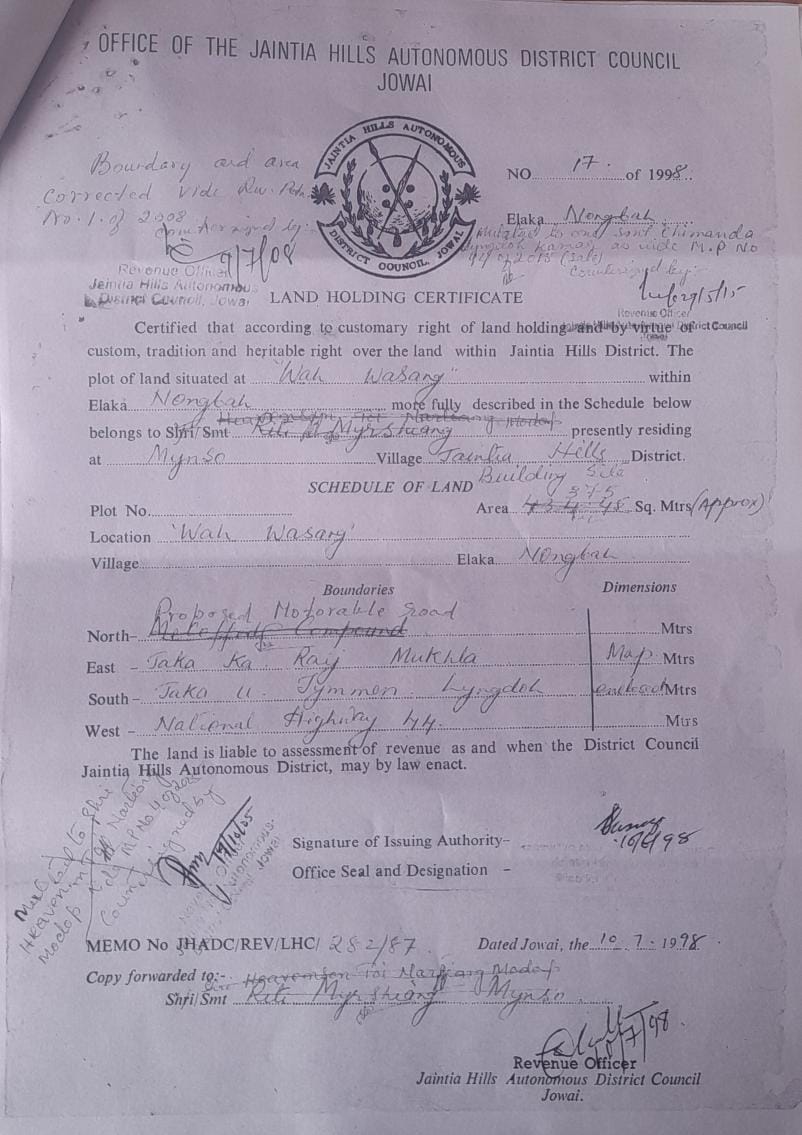 OFFICE OF THE JAINTIA HILLS AUTONOMOUS DISTRICT COUNCIL
JOWAI
JAINTIA HILLS AUTONOMOUS
DISTRICT COUNCIL, JOWAI
Boundary and area
Corrected vide Rev. Petn.
No. 1 of 2008
Countersigned by:-
9/7/08
Revenue Officer
Jaintia Hills Autonomous
District Council, Jowai
NO 17. of 1998.
Elaka Nongbah
Mutated to one Smt. Chimanda
Kamar as vide M.P No
of 2015 (Sale)
Countersigned by:-
29/5/15
Revenue Officer
District Council
Jowai
LAND HOLDING CERTIFICATE
Certified that according to customary right of land holding and by virtue of
custom, tradition and heritable right over the land within Jaintia Hills District. The
plot of land situated at "Wah Wasang" within
Elaka Nongbah more fully described in the Schedule below
Heavenson Toi Nartiang Modop
belongs to Shri/Smt Riti Myrshiang presently residing
at Mynso Village Jaintia Hills District.
Building Site
SCHEDULE OF LAND
375
Plot No. Area 434.48 Sq. Mtrs (Approx)
Location 'Wah Wasang'
Village Elaka Nongbah
Boundaries Dimensions
Proposed Motorable road
North- Compound Mtrs
East - Jaka Ka Raij Mukhla Map Mtrs
South- Jaka u Tymmen Lyngdoh enclosed Mtrs
West - National Highway 44. Mtrs
The land is liable to assessment of revenue as and when the District Council
Jaintia Hills Autonomous District, may by law enact.
Mutated to Shri
Heavenson Toi Nartiang
Modop vide MP No of 2005
Countersigned by
19/10/05
Signature of Issuing Authority-
10/7/98
Office Seal and Designation -
MEMO No JHADC/REV/LHC/ 282/87. Dated Jowai, the 10.7.1998.
Copy forwarded to:- Shri Heavenson Toi Nartiang Modop
Shri/Smt Riti Myrshiang Mynso
10/7/98
Revenue Officer
Jaintia Hills Autonomous District Council
Jowai.